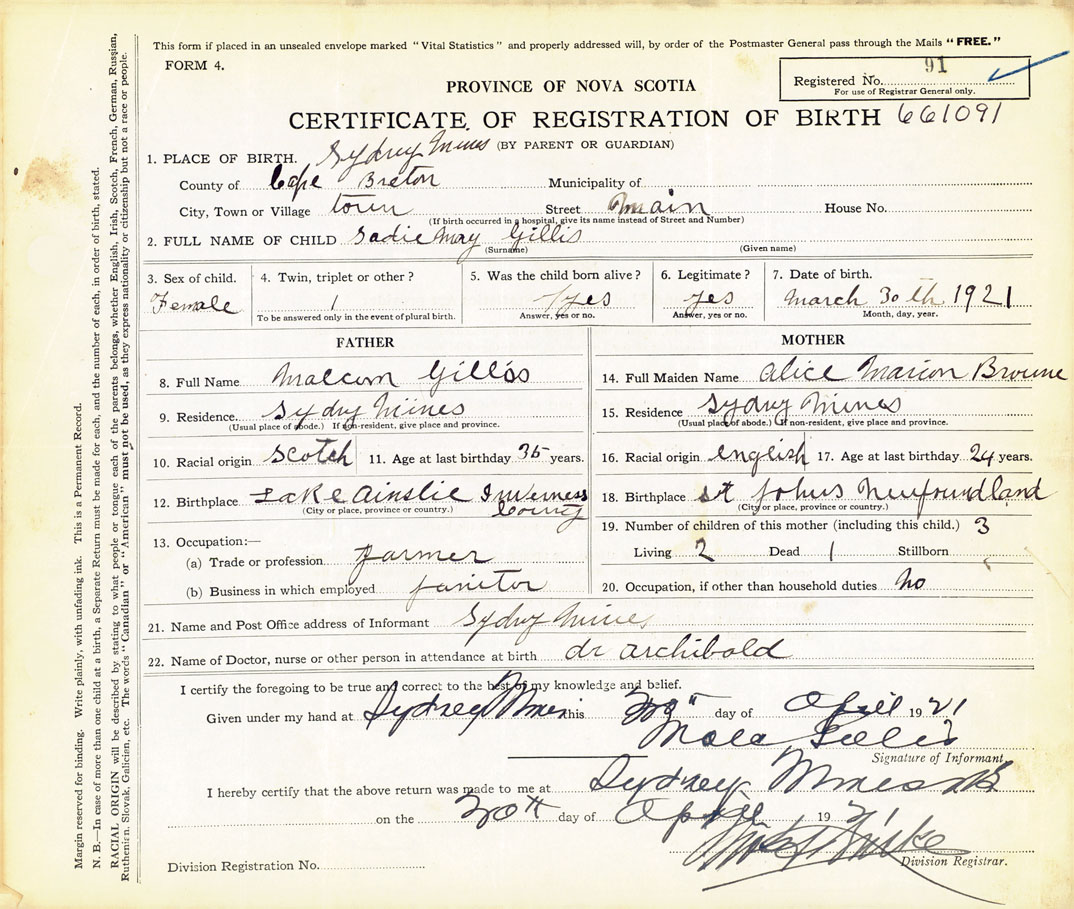 This form if placed in an unsealed envelope marked "Vital Statistics" and properly addressed will, by order of the Postmaster General pass through the Mails "FREE."
FORM 4.
91
Registered No.
For use of Registrar General only.
PROVINCE OF NOVA SCOTIA
CERTIFICATE OF REGISTRATION OF BIRTH 661091
(BY PARENT OR GUARDIAN)
1. PLACE OF BIRTH. Sydney Mines
County of Cape Breton Municipality of
City, Town or Village town Street main House No.
(If birth occurred in a hospital, give its name instead of Street and Number)
2. FULL NAME OF CHILD Sadie May Gillis
(Surname) (Given name)
3. Sex of child. 4. Twin, triplet or other? 5. Was the child born alive? 6. Legitimate? 7. Date of birth.
Female 1 yes yes March 30th 1921
To be answered only in the event of plural birth. Answer, yes or no. Answer, yes or no. Month, day, year.
FATHER
8. Full Name Malcom Gillis
9. Residence. Sydny Mines
(Usual place of abode.) If non-resident, give place and province.
10. Racial origin Scotch 11. Age at last birthday 35 years.
12. Birthplace Lake Ainslie Inverness
County
(City or place, province or country.)
13. Occupation:—
(a) Trade or profession farmer
(b) Business in which employed janitor
MOTHER
14. Full Maiden Name Alice Marion Browne
15. Residence Sydny Mines
(Usual place of abode.) If non-resident, give place and province.
16. Racial origin english 17. Age at last birthday 24 years.
18. Birthplace st Johns Newfoundland
(City or place, province or country.)
19. Number of children of this mother (including this child.) 3
Living 2 Dead 1 Stillborn
20. Occupation, if other than household duties no
21. Name and Post Office address of Informant Sydny Mines
22. Name of Doctor, nurse or other person in attendance at birth dr archibold
I certify the foregoing to be true and correct to the best of my knowledge and belief.
Given under my hand at Sydney Mines this day of April 1921
Signature of Informant
I hereby certify that the above return was made to me at Sydney Mines
on the 30th day of April 1921
Division Registrar.
Division Registration No.
Margin reserved for binding. Write plainly, with unfading ink. This is a Permanent Record.
N. B.—In case of more than one child at a birth, a Separate Return must be made for each, and the number of each, in order of birth, stated.
RACIAL ORIGIN will be described by stating to what people or tongue each of the parents belongs, whether English, Irish, Scotch, French, German, Russian,
Ruthenian, Slovak, Galician, etc. The words "Canadian" or "American" must not be used, as they express nationality or citizenship but not a race or people.